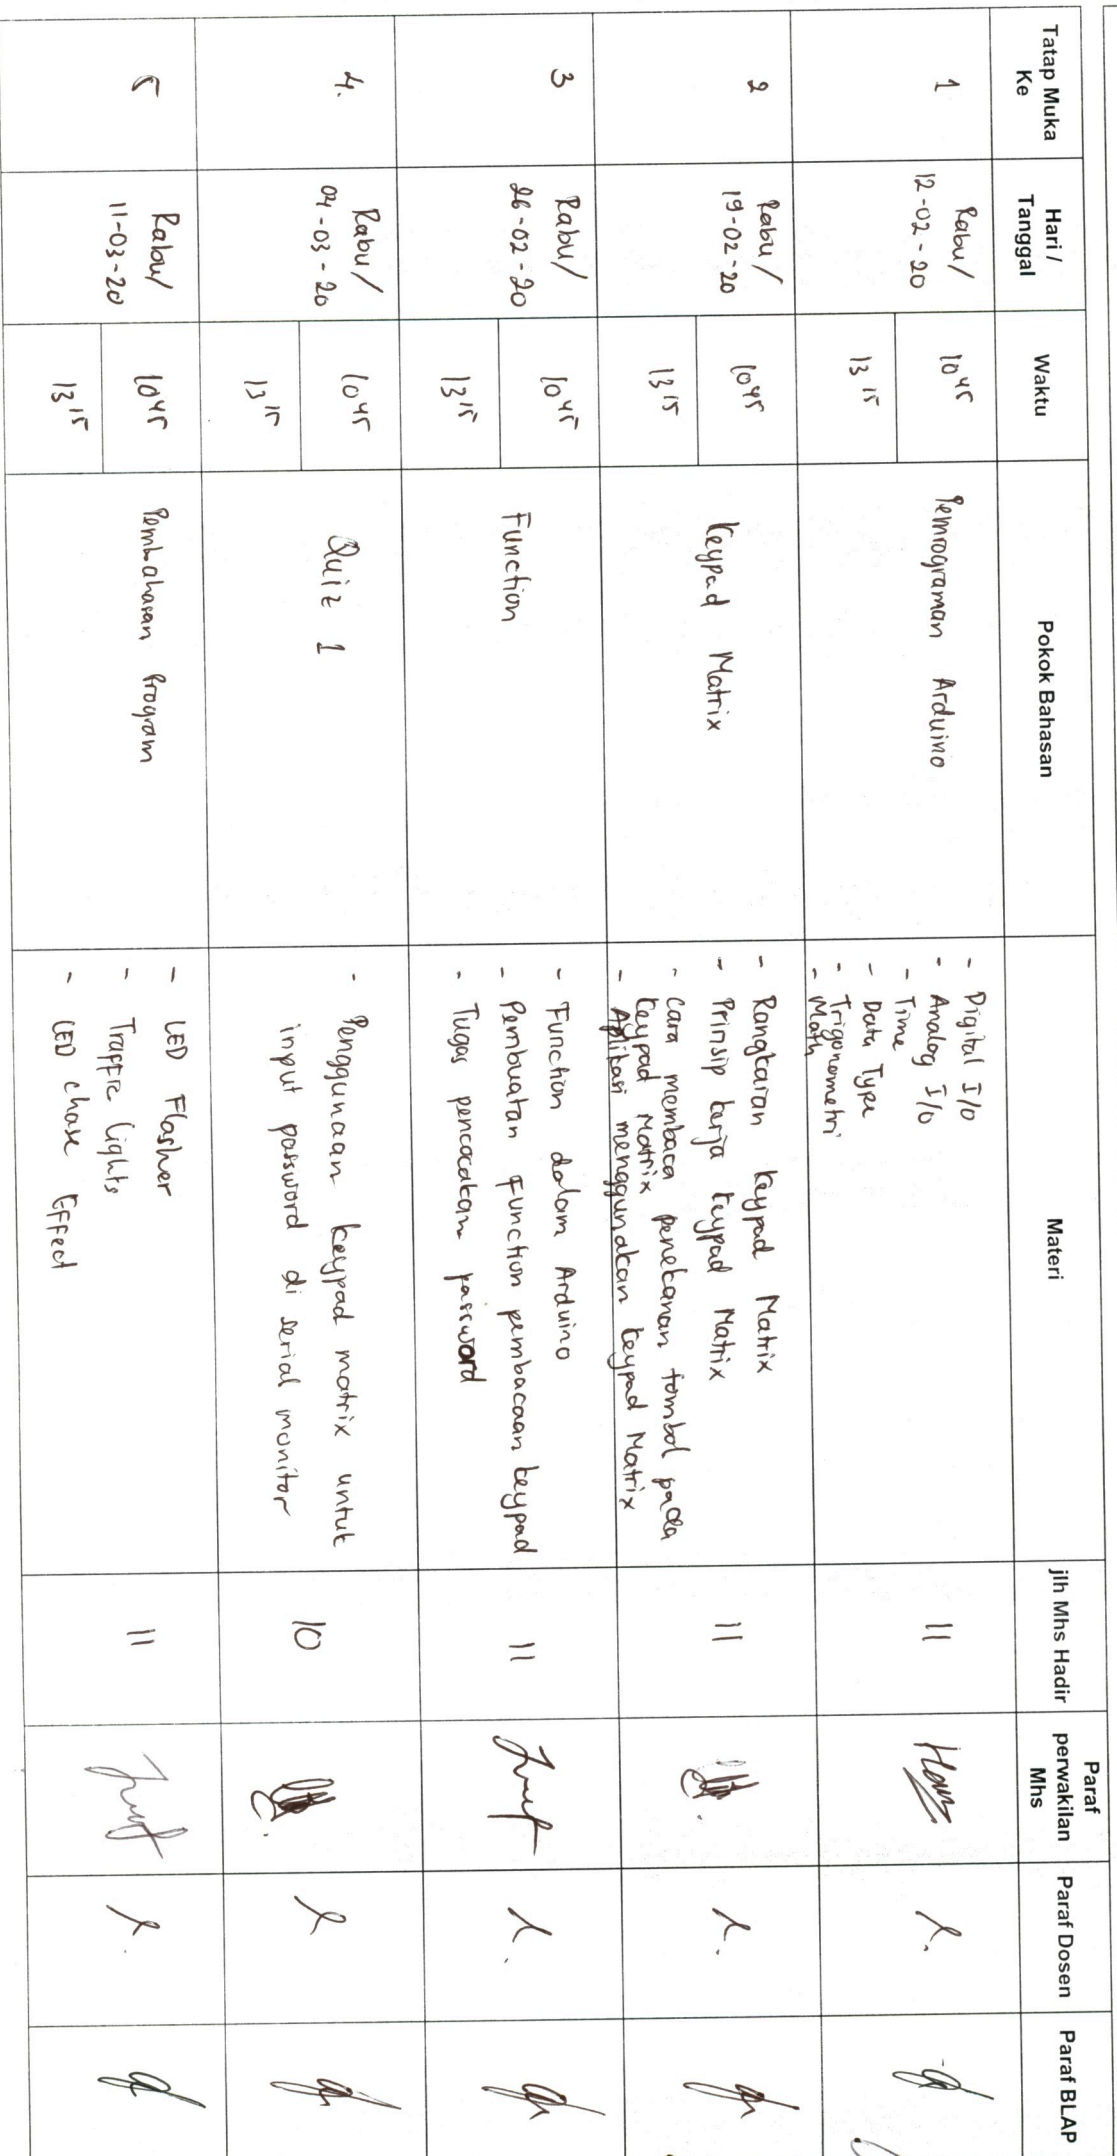 Tatap Muka Ke
Hari / Tanggal
Waktu
Pokok Bahasan
Materi
jlh Mhs Hadir
Paraf perwakilan Mhs
Paraf Dosen
Paraf BLAP
1
Rabu/
12-02-20
10 45
13 15
Pemrograman Arduino
- Digital I/O
- Analog I/O
- Time
- Data Type
- Trigonometri
- Math
11
2
Rabu/
19-02-20
10 45
13 15
Keypad Matrix
- Rangkaian keypad Matrix
- Prinsip kerja keypad Matrix
- Cara membaca penekanan tombol pada
keypad Matrix
- Aplikasi menggunakan keypad Matrix
11
3
Rabu/
26-02-20
10 45
13 15
Function
- Function dalam Arduino
- Pembuatan Function pembacaan keypad
- Tugas pencocokan password
11
4.
Rabu/
04-03-20
10 45
13 15
Quiz 1
- Penggunaan keypad matrix untuk
input password di serial monitor
10
5
Rabu/
11-03-20
10 45
13 15
Pembahasan Program
- LED Flasher
- Traffic Lights
- LED Chase Effect
11